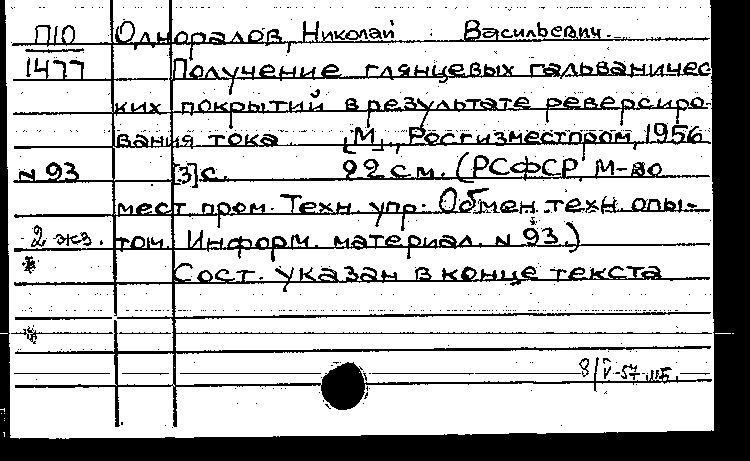 П10 Одноралов, Николай Васильевич.
1477 Получение глянцевых гальваничес
ких покрытий в результате реверсиро-
вания тока [М], Росгизместпром, 1956
N 93 [3]с. 22 см. (РСФСР М-во
мест. пром. Техн. упр. Обмен. техн. опы-
2 экз. том. Информ. материал. N 93.)
Сост. указан в конце текста
8/V-57 мб.